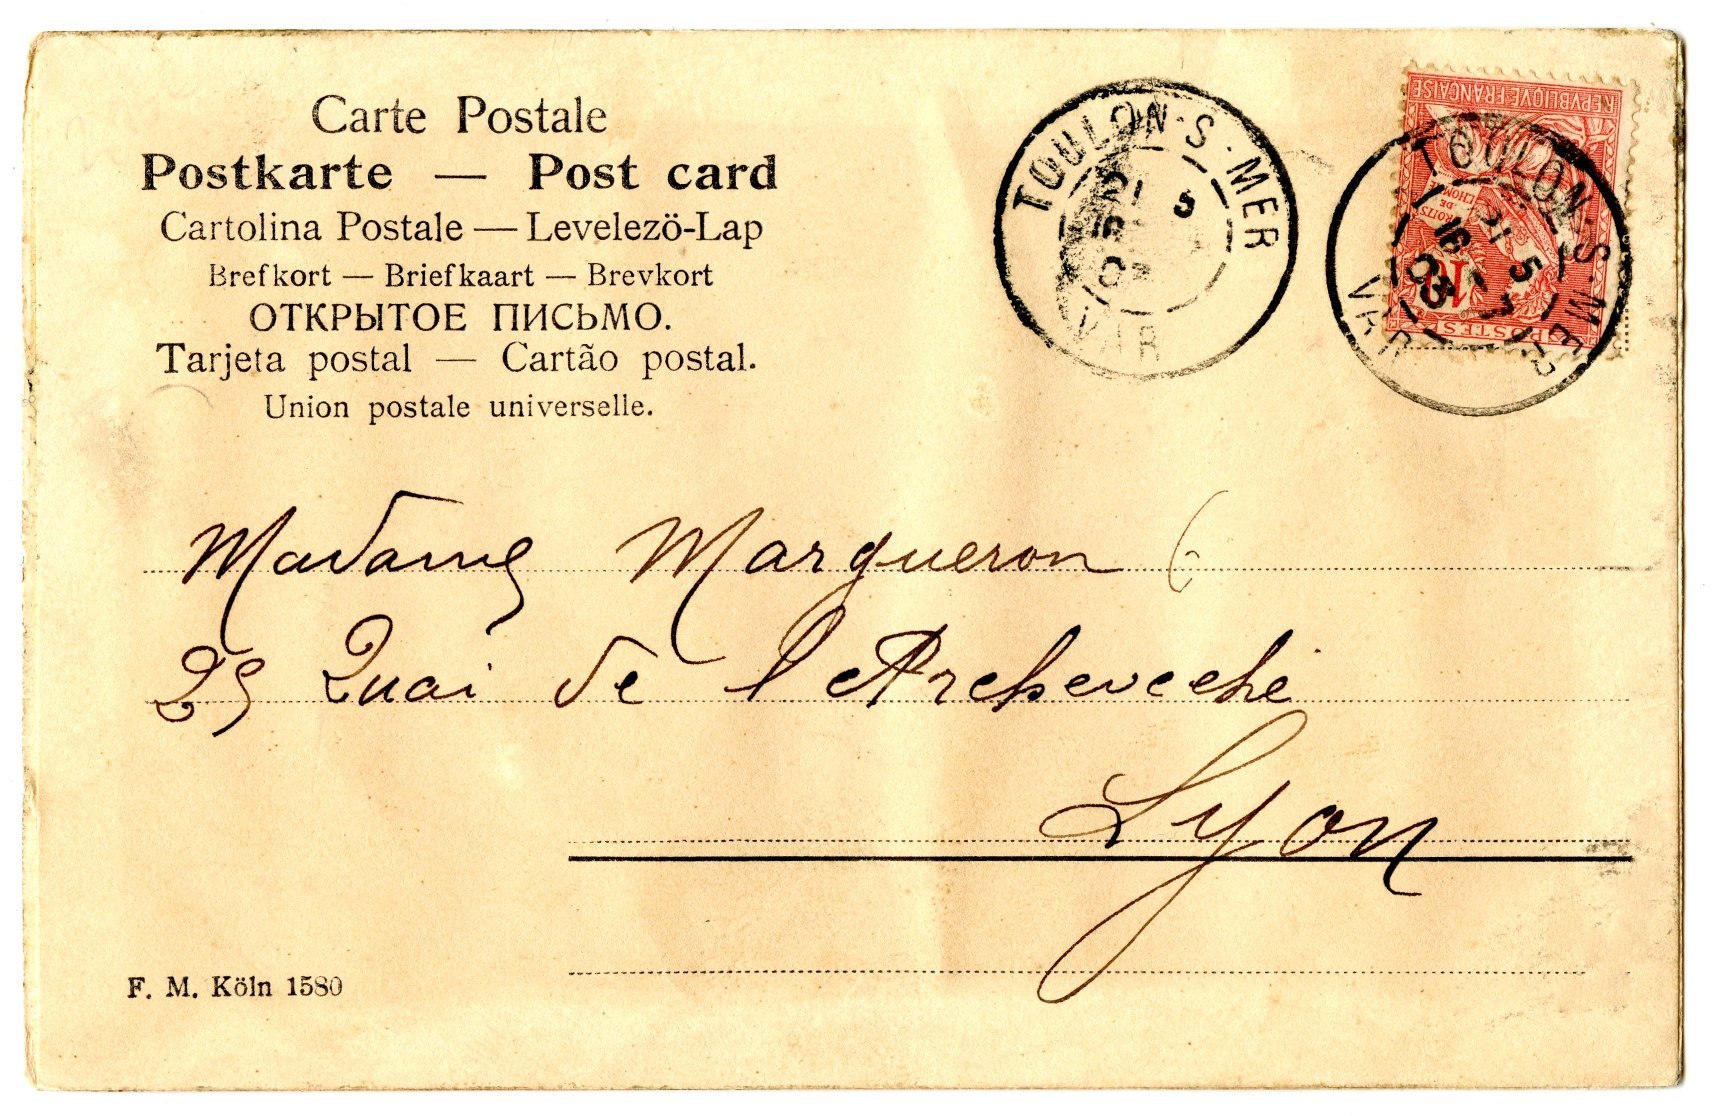 Carte Postale
Postkarte — Post card
Cartolina Postale — Levelezö-Lap
Brefkort — Briefkaart — Brevkort
ОТКРЫТОЕ ПИСЬМО.
Tarjeta postal — Cartão postal.
Union postale universelle.
TOULON-S-MER
5
VAR
REPVBLIQVE FRANÇAISE
DROITS DE L'HOMME
10
POSTES
TOULON-S-MER
16
5
03
VAR
Madame Margueron
25 Quai de l'Archeveché
Lyon
F. M. Köln 1580